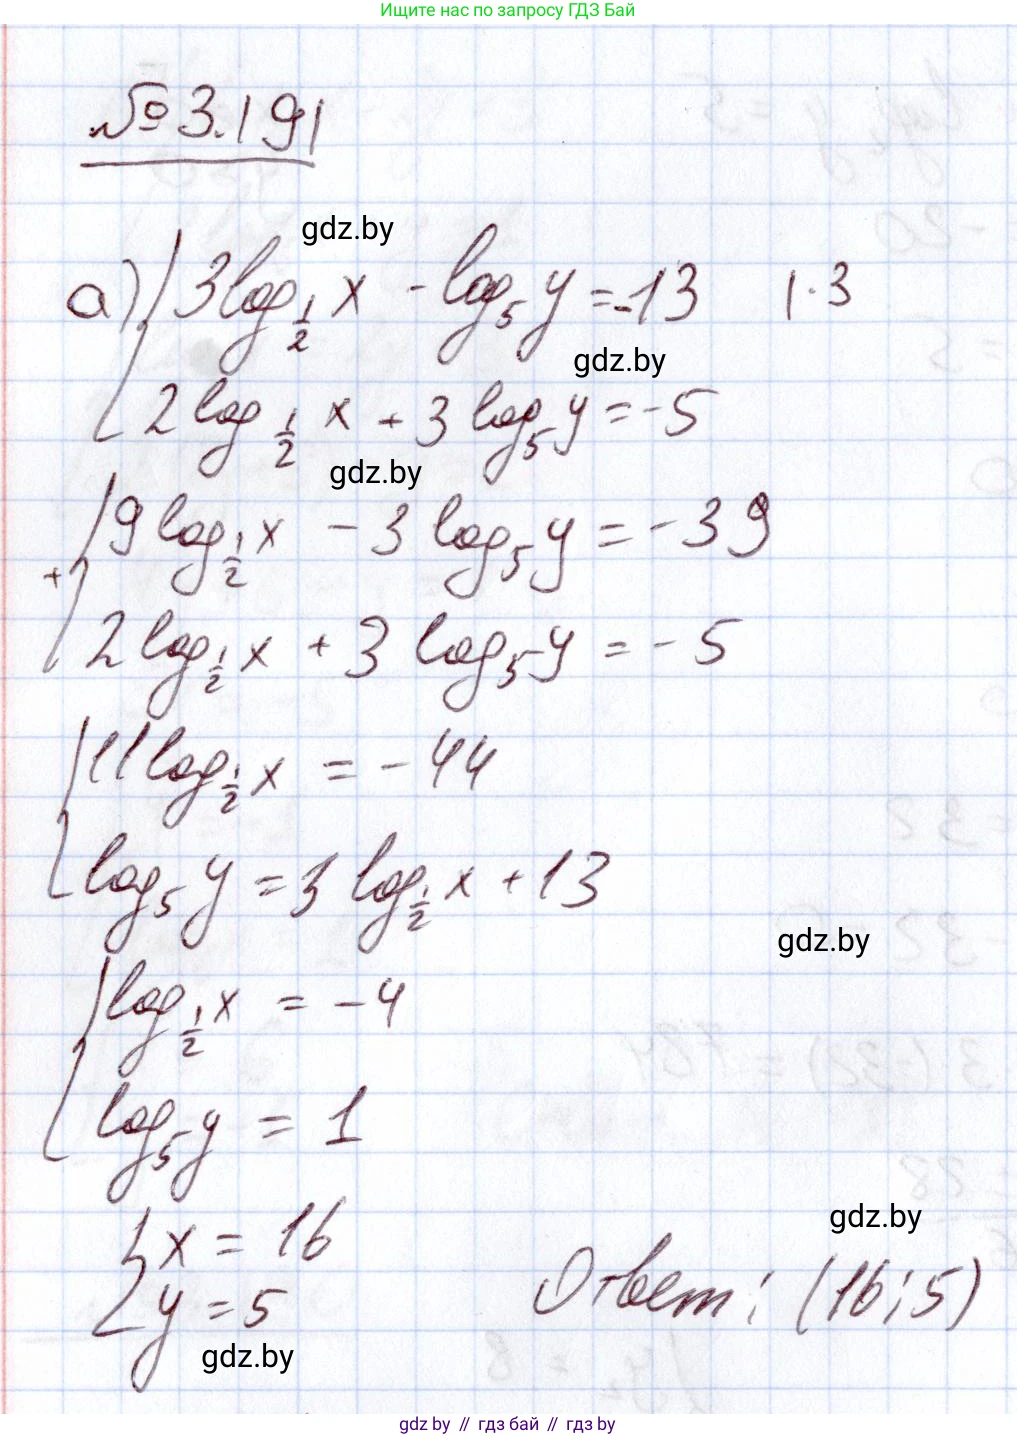 Ищите нас по запросу ГДЗ Бай
№3.191
gdz.by
а) { 3 log_{1/2} x - log_5 y = -13 | · 3
gdz.by
2 log_{1/2} x + 3 log_5 y = -5
gdz.by
{ 9 log_{1/2} x - 3 log_5 y = -39
+
2 log_{1/2} x + 3 log_5 y = -5
{ 11 log_{1/2} x = -44
log_5 y = 3 log_{1/2} x + 13
gdz.by
{ log_{1/2} x = -4
log_5 y = 1
gdz.by
{ x = 16
y = 5 Ответ: (16; 5)
gdz.by
gdz by // гдз бай // гдз by